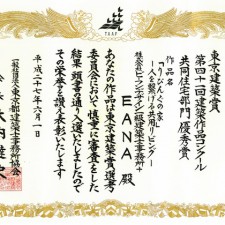 T.A.A.F
東京建築賞
第四十一回建築作品コンクール
共同住宅部門 優秀賞
作品名
「りびんぐの家
―人を繋げる共用リビング―
EANA 殿
あなたの作品は東京建築賞選考
委員会において慎重に審査をした
結果 頭書の通り入選いたしましたので
その栄誉を讃え表彰いたします
平成二十七年六月一日
一般社団法人東京都建築士事務所協会
会長